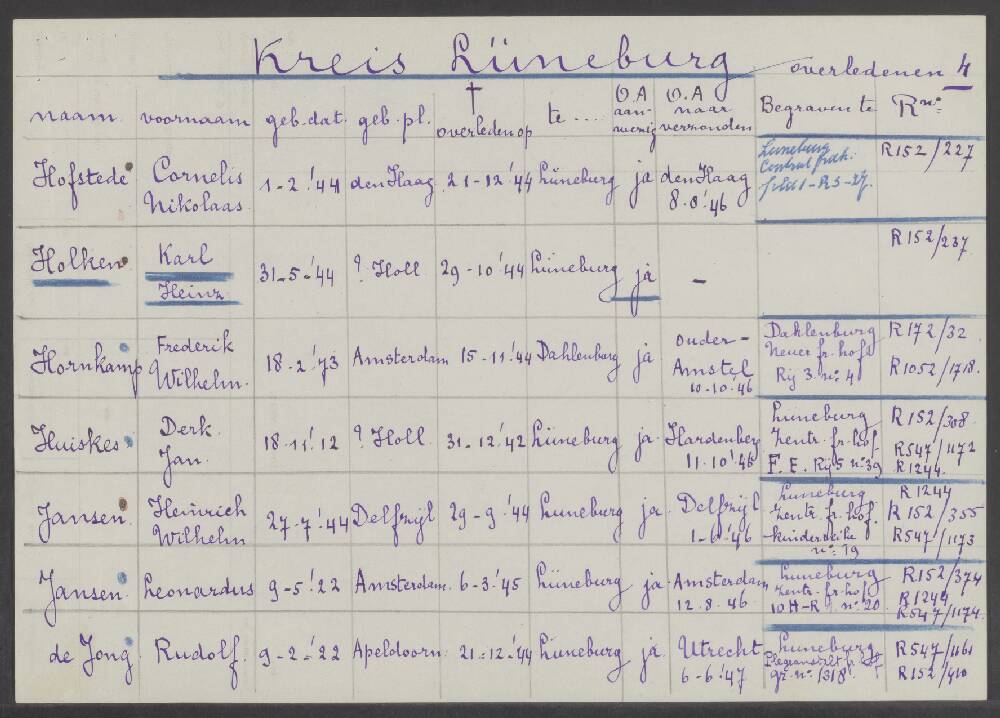 Kreis Lüneburg overledenen 4
naam voornaam geb. dat. geb. pl. † overleden op te .... O.A aanwezig O.A naar verzonden Begraven te R nº
Hofstede Cornelis Nikolaas 1-2-'44 den Haag 21-12-'44 Lüneburg ja den Haag 8-8-'46 Luneburg Central frdh. feld 1-R5-27. R152/227
Holken Karl Heinz 31-5-'44 ? Holl 29-10-'44 Lüneburg ja - R152/237
Hornkamp Frederik Wilhelm. 18-2-'73 Amsterdam 15-11-'44 Dahlenburg ja ouder-Amstel 10-10-'46 Dahlenburg Neuer fr.hof Rij 3. nº 4 R172/32 R1052/1718.
Huiskes Derk Jan. 18-11-'12 ? Holl. 31-12-'42 Lüneburg ja Hardenberg 11-10-'46 Luneburg Zentr. fr.hof. F.E. Rij 5 nº 39 R152/308 R547/1172 R1244.
Jansen Heinrich Wilhelm 27-7-'44 Delfzijl 29-9-'44 Luneburg ja Delfzijl 1-6-'46 Luneburg Zentr. fr.hof. kinderreihe nº 19 R1244 R152/355 R547/1173
Jansen Leonardus 9-5-'22 Amsterdam. 6-3-'45 Lüneburg ja Amsterdam 12-8-46 Luneburg Zentr. fr.hof 10H-R nº 20 R152/374 R1244 R547/1174.
de Jong Rudolf. 9-2-'22 Apeldoorn 21-12-'44 Lüneburg ja Utrecht 6-6-'47 Luneburg gr. nº 1318 R547/1161 R152/410